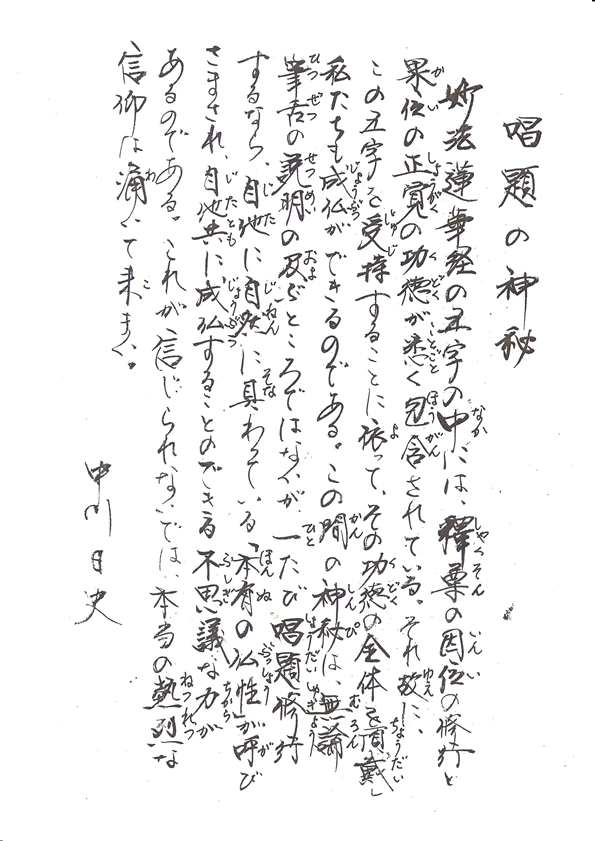 唱題の神秘
妙法蓮華経の五字の中には、釋尊の因位の修行と
果位の正覚の功徳が悉く包含されている。それ故に、
この五字を受持することに依って、その功徳の全体を頂戴し
私たちも成仏ができるのである。この間の神秘は、無論
筆舌の説明の及ぶところではないが、一たび唱題修行
するなら、自他に自然に具わっている「本有の仏性」が呼び
さまされ、自他共に成仏することのできる不思議な力が
あるのである。これが信じられないでは、本当の熱烈な
信仰は涌いて来まい。
中川日史